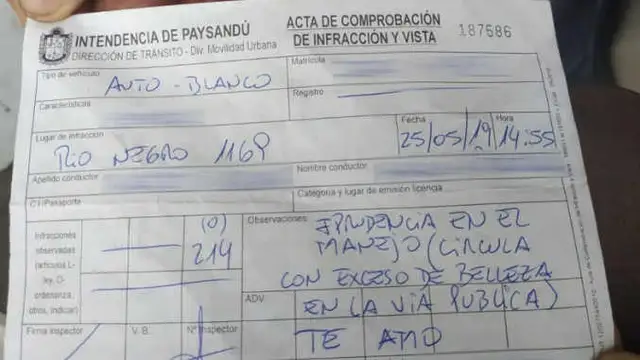 INTENDENCIA DE PAYSANDÚ
DIRECCIÓN DE TRÁNSITO - Div. Movilidad Urbana
ACTA DE COMPROBACIÓN
DE INFRACCIÓN Y VISTA
187586
Tipo de vehículo
AUTO - BLANCO
Matrícula
Característica
Registro
Lugar de infracción
RIO NEGRO 1169
Fecha
25/05/19
Hora
14:55
Apellido conductor
Nombre conductor
C.I/Pasaporte
Categoría y lugar de emisión licencia
Infracciones
observadas
(artículos L-
ley, O-
ordenanza,
otros, indicar)
(O)
214
Observaciones
IPRUDENCIA EN EL
MANEJO (CIRCULA
CON EXCESO DE BELLEZA
EN LA VIA PUBLICA)
ADV
TE AMO
Firma Inspector
V. B.
Nº Inspector